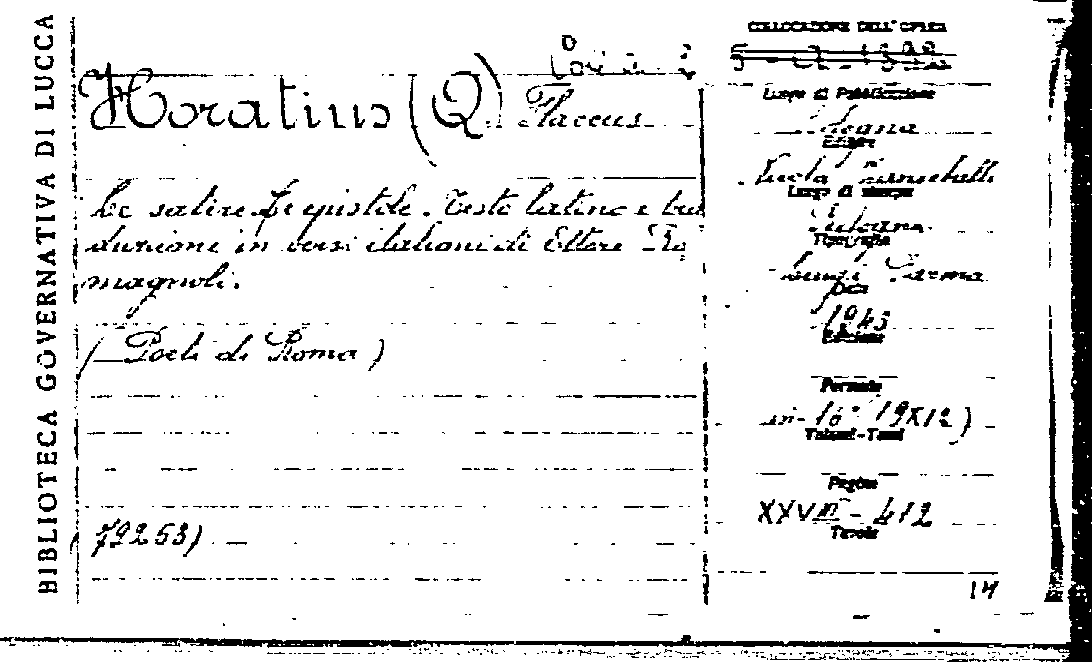 BIBLIOTECA GOVERNATIVA DI LUCCA
COLLOCAZIONE DELL'OPERA
Horatius (Q) Flaccus
Le satire. Le epistole. Testo latino e tra
duzione in versi italiani di Ettore Ro
magnoli.
(Poeti di Roma)
79253)
Luogo di Pubblicazione
Editore
Nicola Zanichelli
Luogo di stampa
Tipografia
Luigi Parma
Data
1943
Edizione
Formato
in-16° 19X12)
Volumi-Tomi
Pagine
XXVIII - 412
Tavole
14